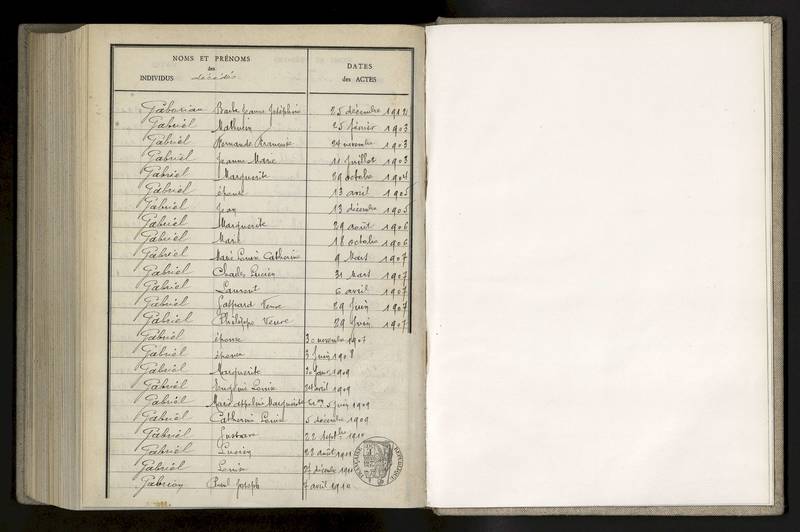 NOMS ET PRÉNOMS
des
INDIVIDUS décédés
DATES
des ACTES
Barbe Jeanne Joséphine 25 décembre 1912
Gabriel Mathurin 25 février 1903
Gabriel Fernande 24 novembre 1903
Gabriel Jeanne Marie 11 Juillet 1903
Gabriel Marguerite 29 octobre 1904
Gabriel épouse 13 avril 1905
Gabriel Jean 13 décembre 1905
Gabriel Marguerite 29 août 1906
Gabriel Marie 18 octobre 1906
Gabriel Marie Louise Catherine 9 Mars 1907
Gabriel Charles Lucien 31 Mars 1907
Gabriel Laurent 6 avril 1907
Gabriel Gaspard Veuve 29 Juin 1907
Gabriel Philippe Veuve 29 Juin 1907
Gabriel épouse 30 novembre 1907
Gabriel épouse 3 Juin 1908
Gabriel Marguerite 1909
Gabriel Eugénie Louise 24 avril 1909
Gabriel Marie Marguerite 5 Juin 1909
Gabriel Catherine 5 décembre 1909
Gabriel Gustave 22 Septbre 1910
Gabriel Lucien 22 août
Gabriel Louise 27 décembre
Gabrion Paul Joseph 7 avril 1910